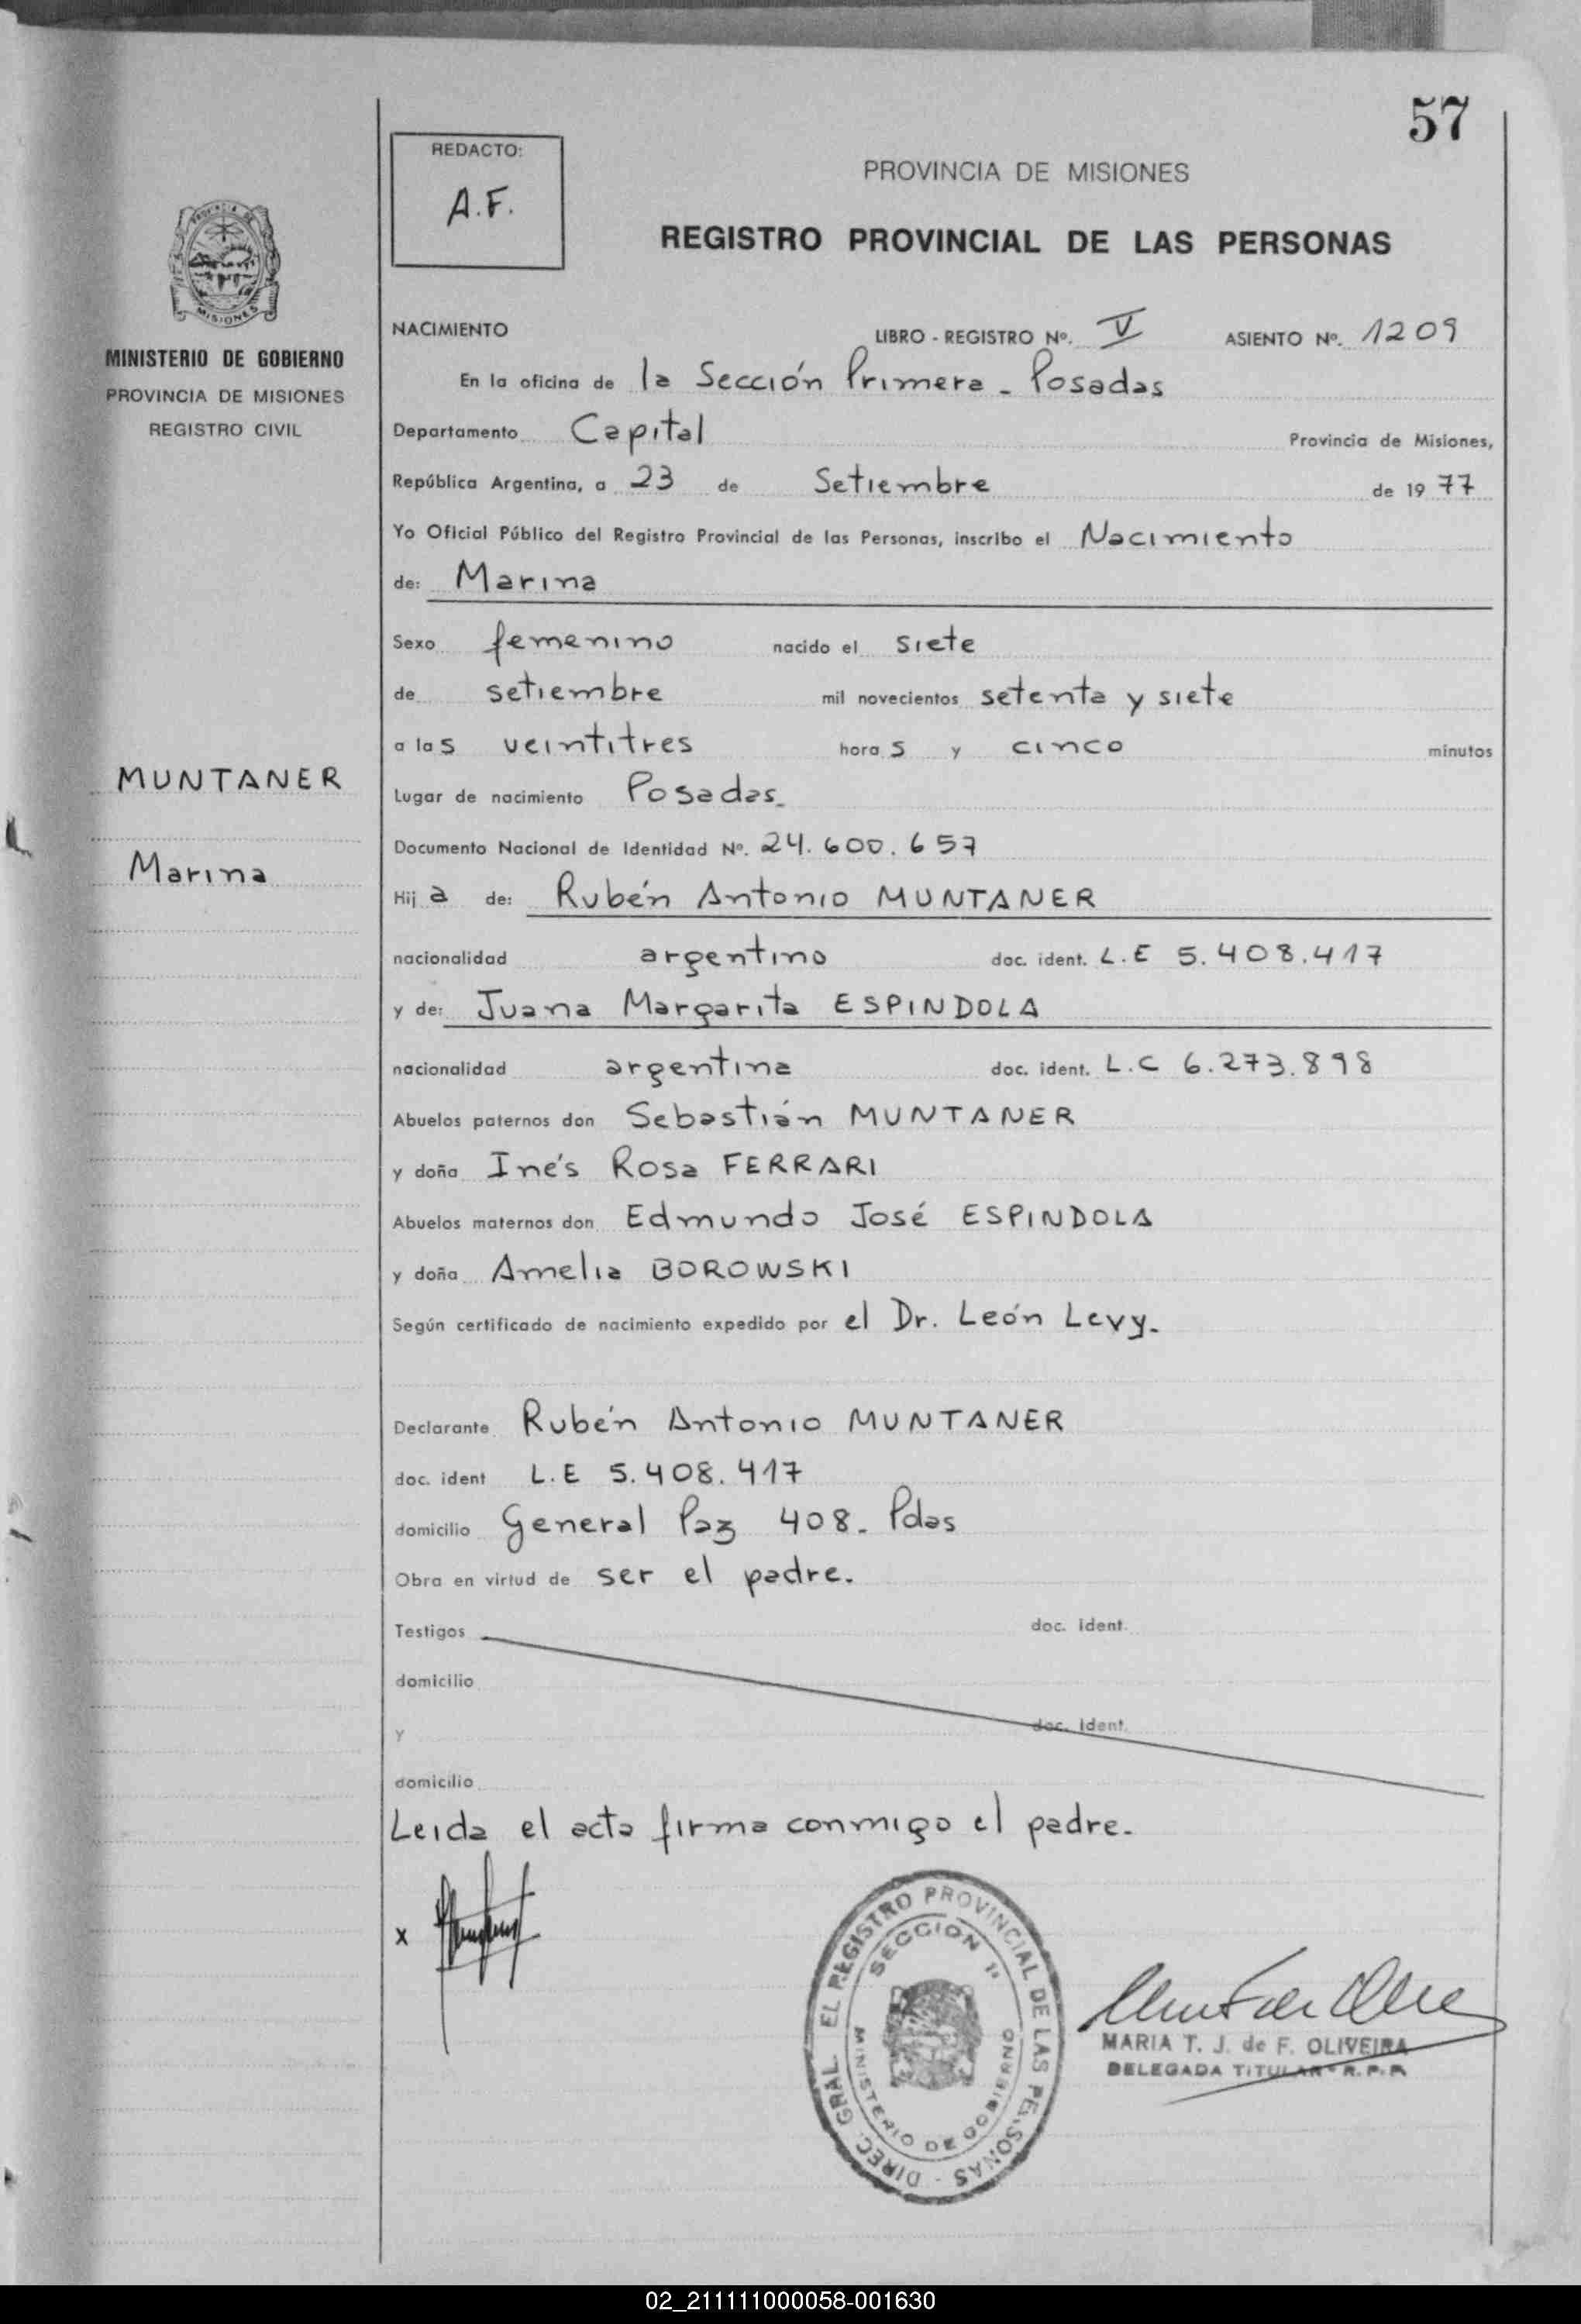 57
REDACTO:
A.F.
PROVINCIA DE MISIONES
REGISTRO PROVINCIAL DE LAS PERSONAS
PROVINCIA DE
MISIONES
MINISTERIO DE GOBIERNO
PROVINCIA DE MISIONES
REGISTRO CIVIL
MUNTANER
Marina
NACIMIENTO LIBRO - REGISTRO Nº. V ASIENTO Nº. 1209
En la oficina de la Sección Primera - Posadas
Departamento Capital Provincia de Misiones,
República Argentina, a 23 de Setiembre de 1977
Yo Oficial Público del Registro Provincial de las Personas, inscribo el Nacimiento
de: Marina
Sexo femenino nacido el siete
de setiembre mil novecientos setenta y siete
a las veintitres horas y cinco minutos
Lugar de nacimiento Posadas.
Documento Nacional de Identidad Nº. 24.600.657
Hija de: Rubén Antonio MUNTANER
nacionalidad argentino doc. ident. L.E 5.408.417
y de: Juana Margarita ESPINDOLA
nacionalidad argentina doc. ident. L.C 6.273.898
Abuelos paternos don Sebastián MUNTANER
y doña Inés Rosa FERRARI
Abuelos maternos don Edmundo José ESPINDOLA
y doña Amelia BOROWSKI
Según certificado de nacimiento expedido por el Dr. León Levy.
Declarante Rubén Antonio MUNTANER
doc. ident L.E 5.408.417
domicilio General Paz 408. Pdas
Obra en virtud de ser el padre.
Testigos doc. ident.
domicilio
y doc. ident.
domicilio
Leida el acta firma conmigo el padre.
x
DIREC. GRAL. EL REGISTRO PROVINCIAL DE LAS PERSONAS -
SECCION 1ª
MINISTERIO DE GOBIERNO
MARIA T. J. de F. OLIVEIRA
DELEGADA TITULAR R.P.P.
02_211111000058-001630